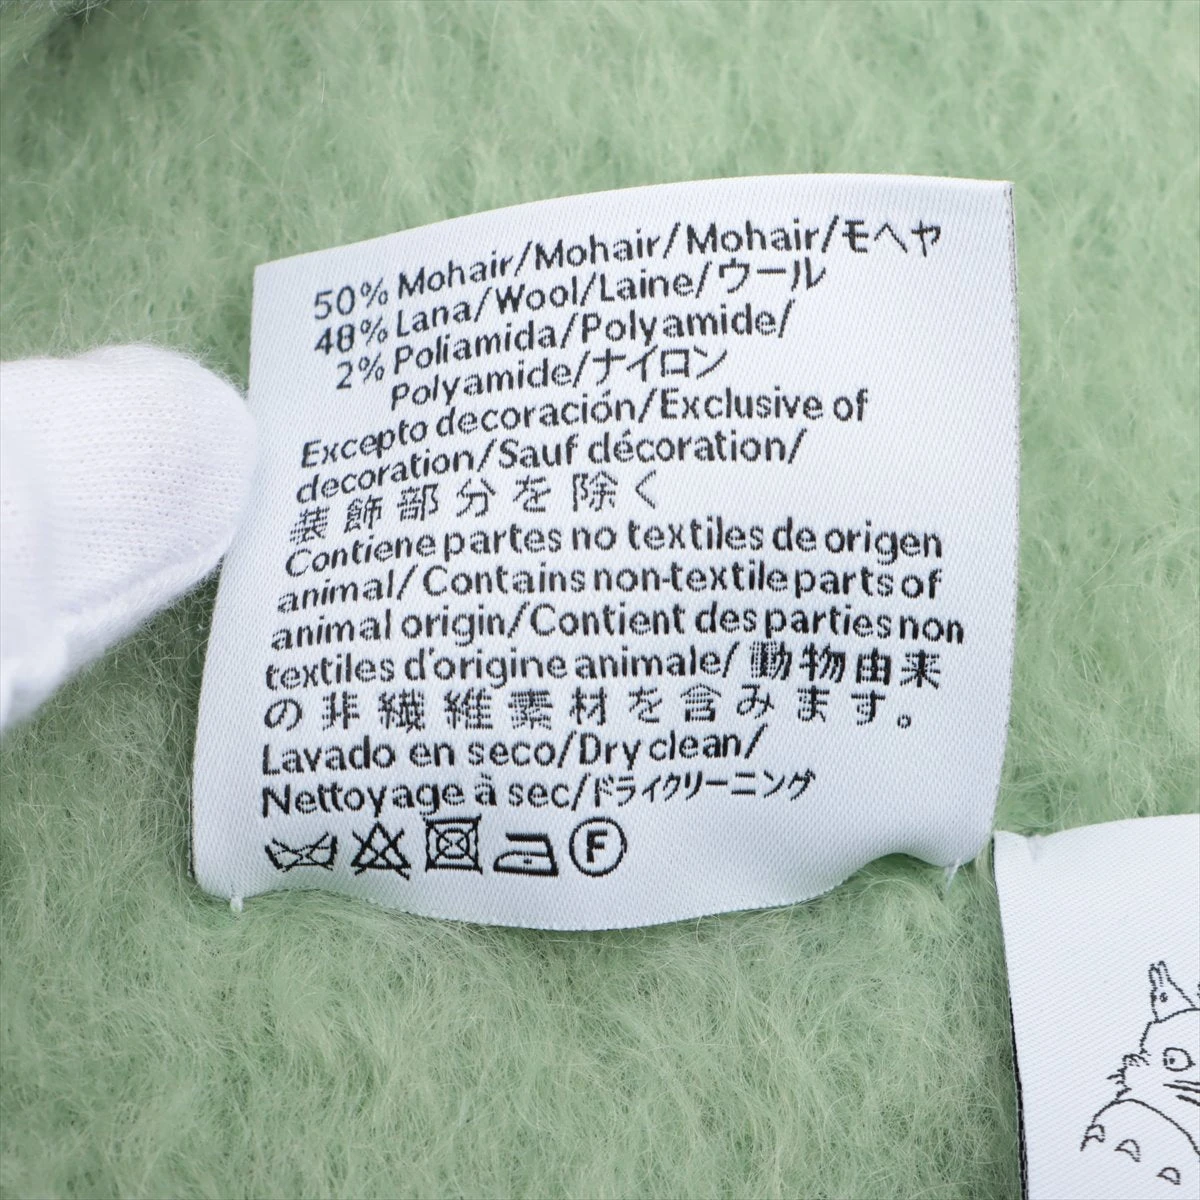 50% Mohair/Mohair/Mohair/モヘヤ
48% Lana/Wool/Laine/ウール
2% Poliamida/Polyamide/
Polyamide/ナイロン
Excepto decoración/Exclusive of
decoration/Sauf décoration/
装飾部分を除く
Contiene partes no textiles de origen
animal/Contains non-textile parts of
animal origin/Contient des parties non
textiles d'origine animale/動物由来
の非繊維素材を含みます。
Lavado en seco/Dry clean/
Nettoyage à sec/ドライクリーニング
F